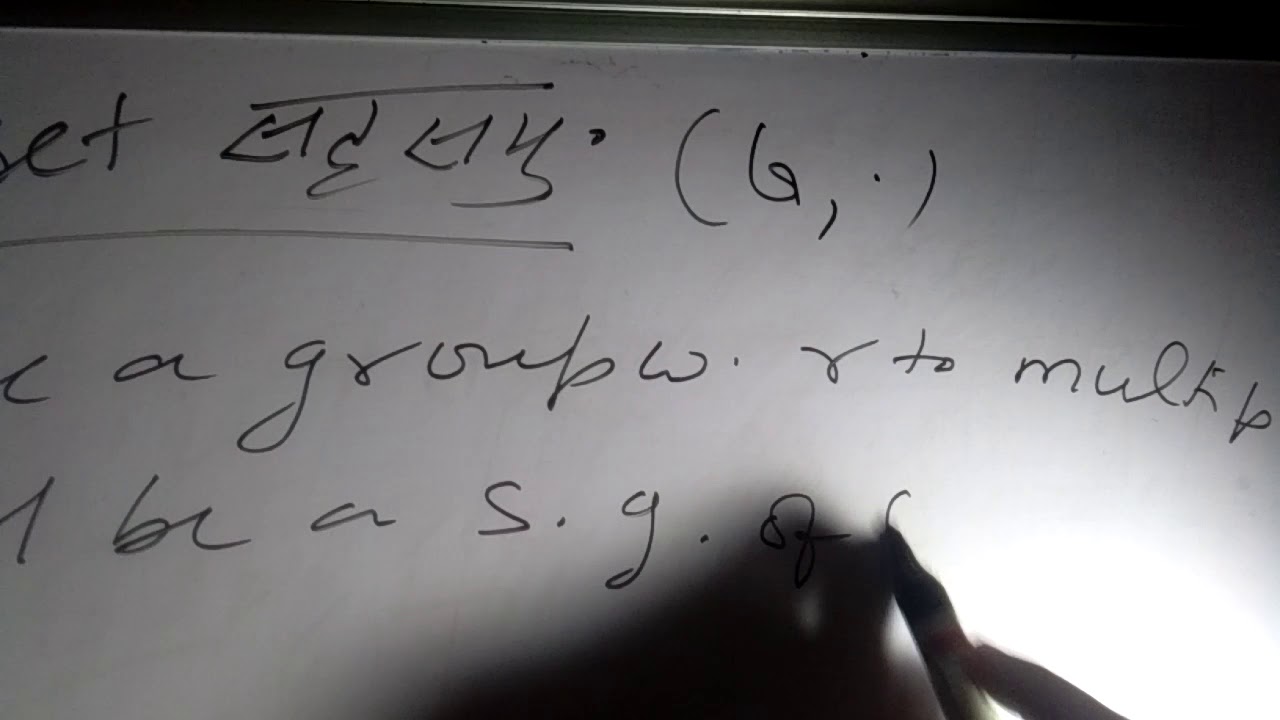 set सहसमु. (G, .)
a group w. r to multip
be a s. g. of